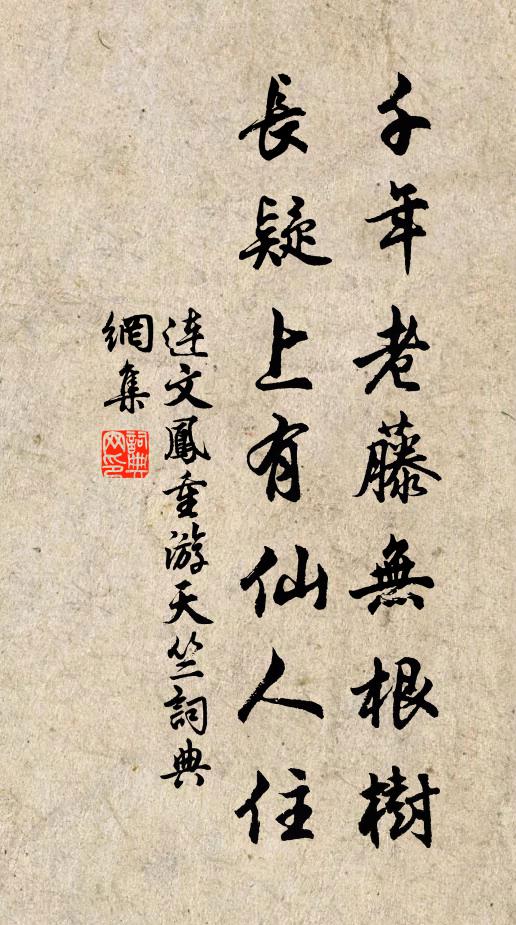 千年老藤無根樹
長疑上有仙人住
連文鳳重游天竺詞典
網集
詞典
网印